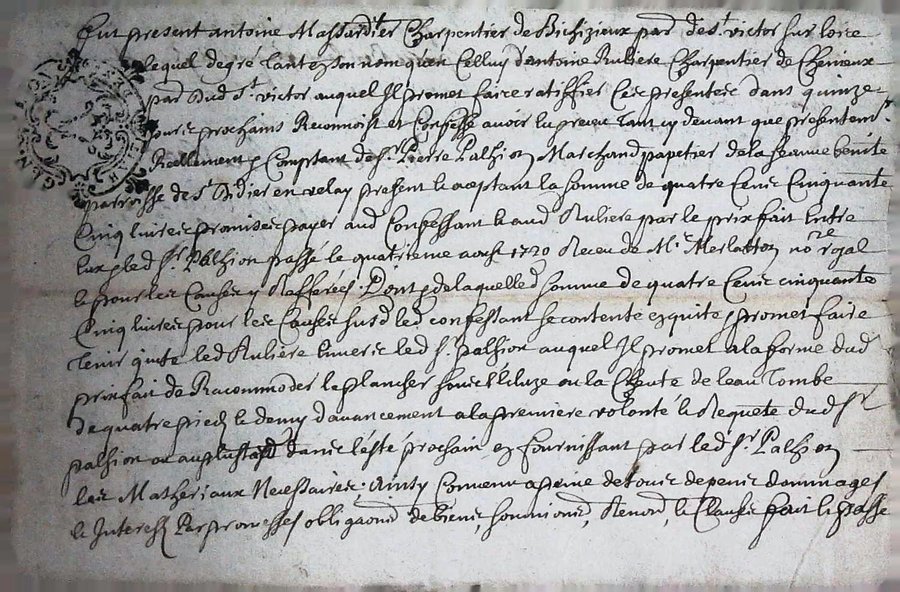 fut present antoine Massardier Charpentier de Bichizieux par. de st victor sur loire
lequel de gré tant en son nom qu'en Celluy d'antoine Rulière Charpentier de Chenieux
par. dud st victor auquel Il promet faire ratiffier Ces presentes dans quinze
jours prochains Reconnoist et Confesse avoir lu preceu tant cy devant que presentemt
Reellement Comptant de sr Pierre Palhion Marchand papetier de la seauve benite
parroisse de st Didier en velay present le aceptant la somme de quatre Cens Cinquante
Cinq livres promises payer aud Confessant & aud Rulière par le prix fait Entre
Eux & led sr Palhion passé le quatrieme aoust 1720 Receu de Me Merlatton nore royal
& pour les Causes y Rafferées. Dont & de laquelled somme de quatre Cens cinquante
Cinq livres pour les Causes susd led confessant se contente & quite & promet faire
tenir quite led Rulière Envers led sr palhion auquel Il promet a la forme dud
prix fait de Racommoder le plancher sous l'Ecluze ou la Cheute de leau tombe
de quatre pieds & demy d'avancement a la premiere volonté & Requete dud sr
palhion ou au plustard dans l'été prochain en fournissant par led sr Palhion
les Matheriaux Necessaires. Ainsy Convenu a peine de tous depens dommages
& Interests Par promesses obligaons de biens, soumions, Renons, & Clauses fait & passé